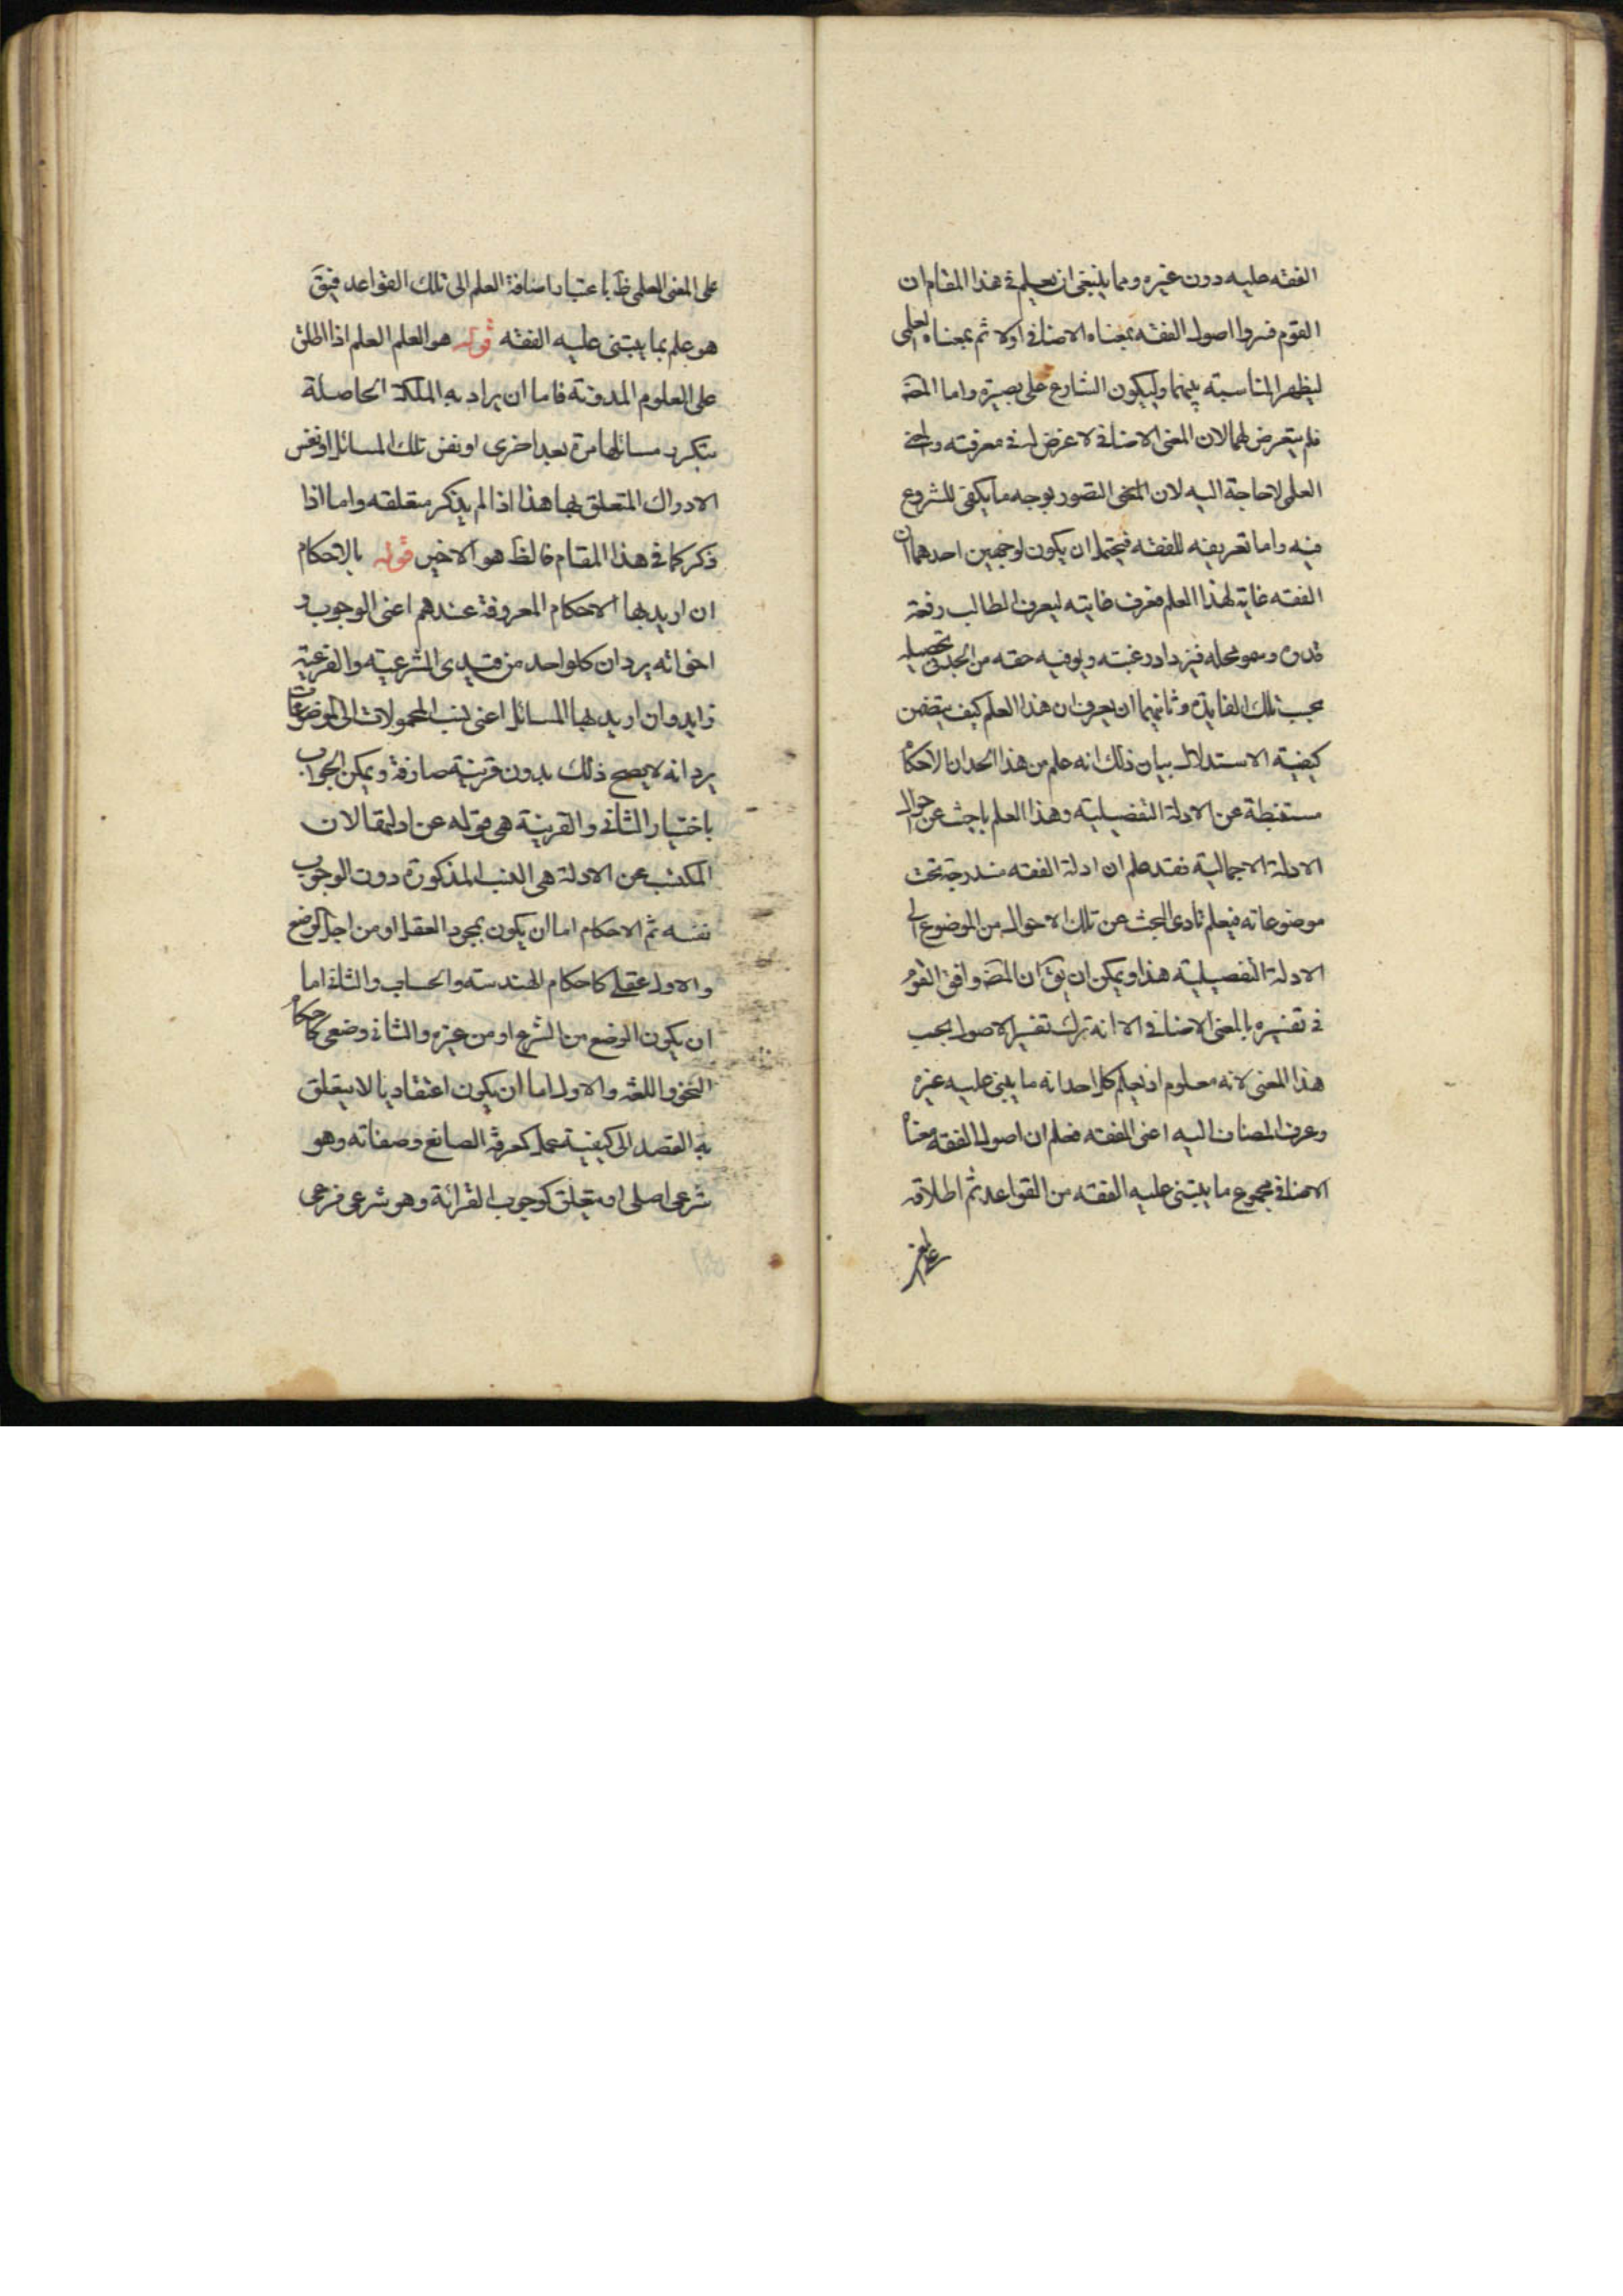 الفقه عليه دون غيره ومما ينبغى ان يعلم فى هذا المقام ان
القوم فسروا اصول الفقه بمعناه الاضافى اولا ثم بمعناه العلمى
ليظهر المناسبة بينهما وليكون الشارع على بصيرة واما المصه
فلم يتعرض لهما لان المعنى الاضافى لا غرض له فى معرفته
العلمى لاحاجة اليه لان المعنى التصور بوجه ما يكفى للشروع
فيه واما تعريفه للفقه فيحتمل ان يكون لوجهين احدهما ان
الفقه غاية لهذا العلم فعرف غايته ليعرف الطالب رفعة
قدره وسمو محله فيزداد رغبته ويوفيه حقه من الجد فى تحصيله
بحسب تلك الفايدة وثانيهما ان يعرف ان هذا العلم كيف يتضمن
كيفية الاستدلال بيان ذلك انه علم من هذا الحد ان الاحكام
مستنبطة عن الادلة التفصيلية وهذا العلم باحث عن احوال
الادلة الاجمالية فقد علم ان ادلة الفقه مندرجة تحت
موضوعاته فيعلم تادى البحث عن تلك الاحوال من الموضوع الى
الادلة التفصيلية هذا ويمكن ان يق ان المصه وافق القوم
فى تفسيره بالمعنى الاضافى الا انه ترك تفسير الاصول بحسب
هذا المعنى لانه معلوم اذ يعلم كل احد انه ما يبنى عليه غيره
وعرف المضاف اليه اعنى الفقه فعلم ان اصول الفقه معناه
الاضافى مجموع ما يبتنى عليه الفقه من القواعد ثم اطلاقه
على المعنى العلمى ظ باعتبار اضافة العلم الى تلك القواعد فيق
هو علم بما يبتنى عليه الفقه قوله هو العلم العلم اذا اطلق
على العلوم المدونة فاما ان يراد به الملكة الحاصلة
بتكرر مسائلها مرة بعد اخرى او نفس تلك المسائل او نفس
الادراك المتعلق بها هذا اذا لم يذكر متعلقه واما اذا
ذكر كما فى هذا المقام فالظ هو الاخير قوله بالاحكام
ان اريد بها الاحكام المعروفة عندهم اعنى الوجوب و
اخواته يرد ان كل واحد من قيدى الشرعية والفرعية
زايد وان اريد بها المسائل اعنى نسب المحمولات الى الموضوعات
يرد انه لا يصح ذلك بدون قرينة صارفة ويمكن الجواب
باختيار الثانى والقرينة هى قوله عن ادلتها لان
المكتسب عن الادلة هى النسب المذكورة دون الوجوب
نفسه ثم الاحكام اما ان يكون بمجرد العقل او من اجل الوضع
والاول عقلى كاحكام الهندسة والحساب والثانى اما
ان يكون الوضع من الشرع او من غيره والثانى وضعى كاحكام
النحو واللغة والاول اما ان يكون اعتقاديا لا يتعلق
به القصد الى كيفية عمل كمعرفة الصانع وصفاته وهو
شرعى اصلى او يتعلق كوجوب القرائة وهو شرعى فرعى